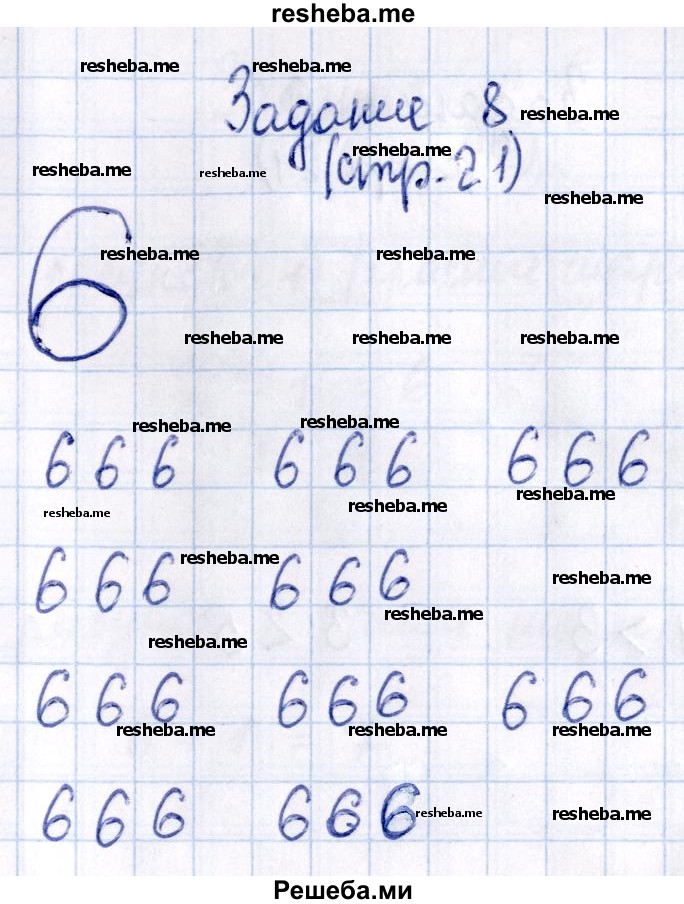 resheba.me
resheba.me resheba.me
Задание 8 resheba.me
resheba.me resheba.me resheba.me
(стр. 21) resheba.me
6
resheba.me resheba.me
resheba.me resheba.me resheba.me
resheba.me resheba.me
6 6 6 6 6 6 6 6 6
resheba.me resheba.me resheba.me
resheba.me resheba.me
6 6 6 6 6 6
resheba.me
resheba.me
6 6 6 6 6 6 6 6 6
resheba.me resheba.me resheba.me
6 6 6 6 6 6 resheba.me resheba.me
Решеба.ми